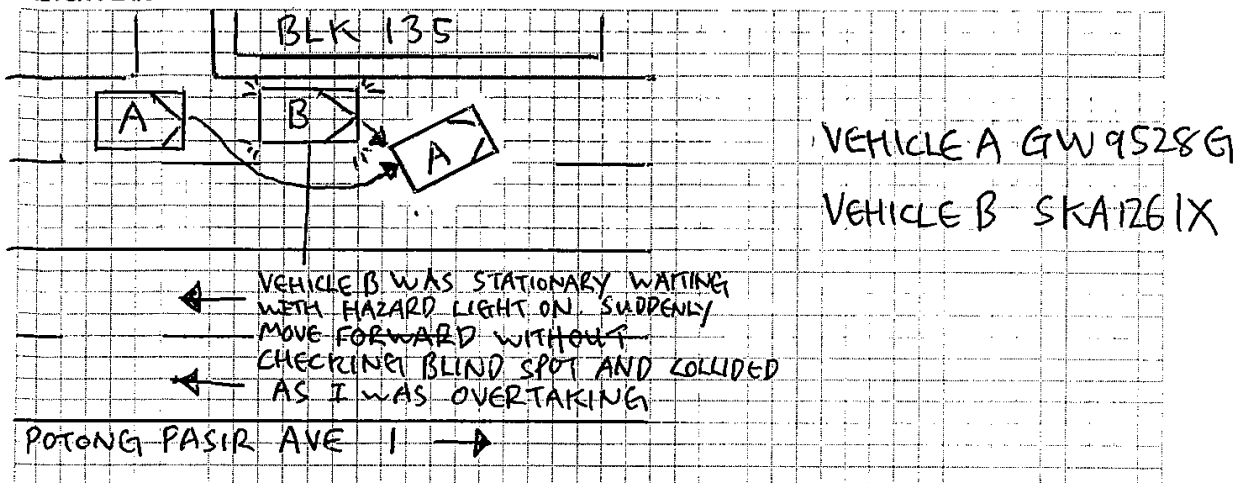 BLK 135
A
B
A
VEHICLE A GW9528G
VEHICLE B SKA1261X
VEHICLE B WAS STATIONARY WAITING
WITH HAZARD LIGHT ON. SUDDENLY
MOVE FORWARD WITHOUT
CHECKING BLIND SPOT AND COLLIDED
AS I WAS OVERTAKING
POTONG PASIR AVE 1